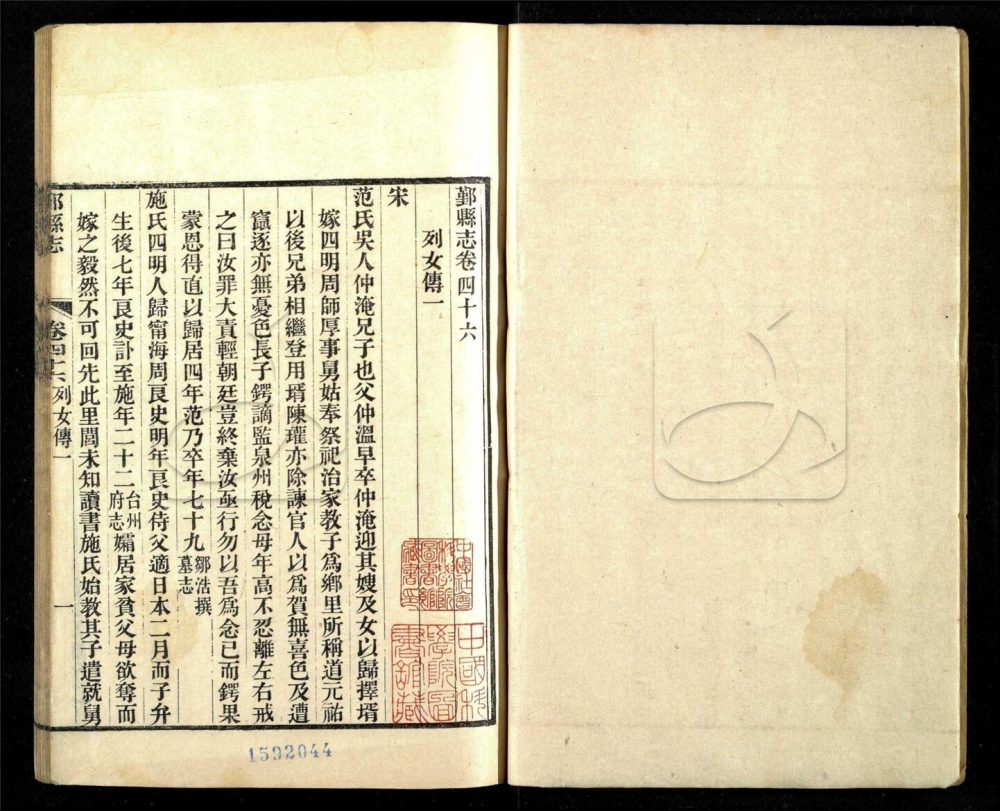 鄞縣志卷四十六
列女傳一
宋
范氏吳人仲淹兄子也父仲溫早卒仲淹迎其嫂及女以歸擇壻
嫁四明周師厚事舅姑奉祭祀治家教子爲鄉里所稱道元祐
以後兄弟相繼登用壻陳瓘亦除諫官人以爲賀無喜色及遭
竄逐亦無憂色長子鍔謫監泉州稅念母年高不忍離左右戒
之曰汝罪大責輕朝廷豈終棄汝亟行勿以吾爲念已而鍔果
蒙恩得直以歸居四年范乃卒年七十九鄒浩撰墓志
施氏四明人歸甯海周良史明年良史侍父適日本二月而子弁
生後七年良史訃至施年二十二台州府志孀居家貧父母欲奪而
嫁之毅然不可回先此里閭未知讀書施氏始教其子遣就舅
鄞縣志
卷四十六 列女傳一
一
中國社會科學院圖書館藏書印
中國科學院圖書館藏
1592044